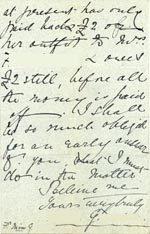 at present has only
paid back £2 of
her outfit to Mrs
F owes
£2 still, before all
the money is paid
of. I shall
be so much obliged
for an early answer
to you, what I must
do in the matter
Believe me
Yours very truly